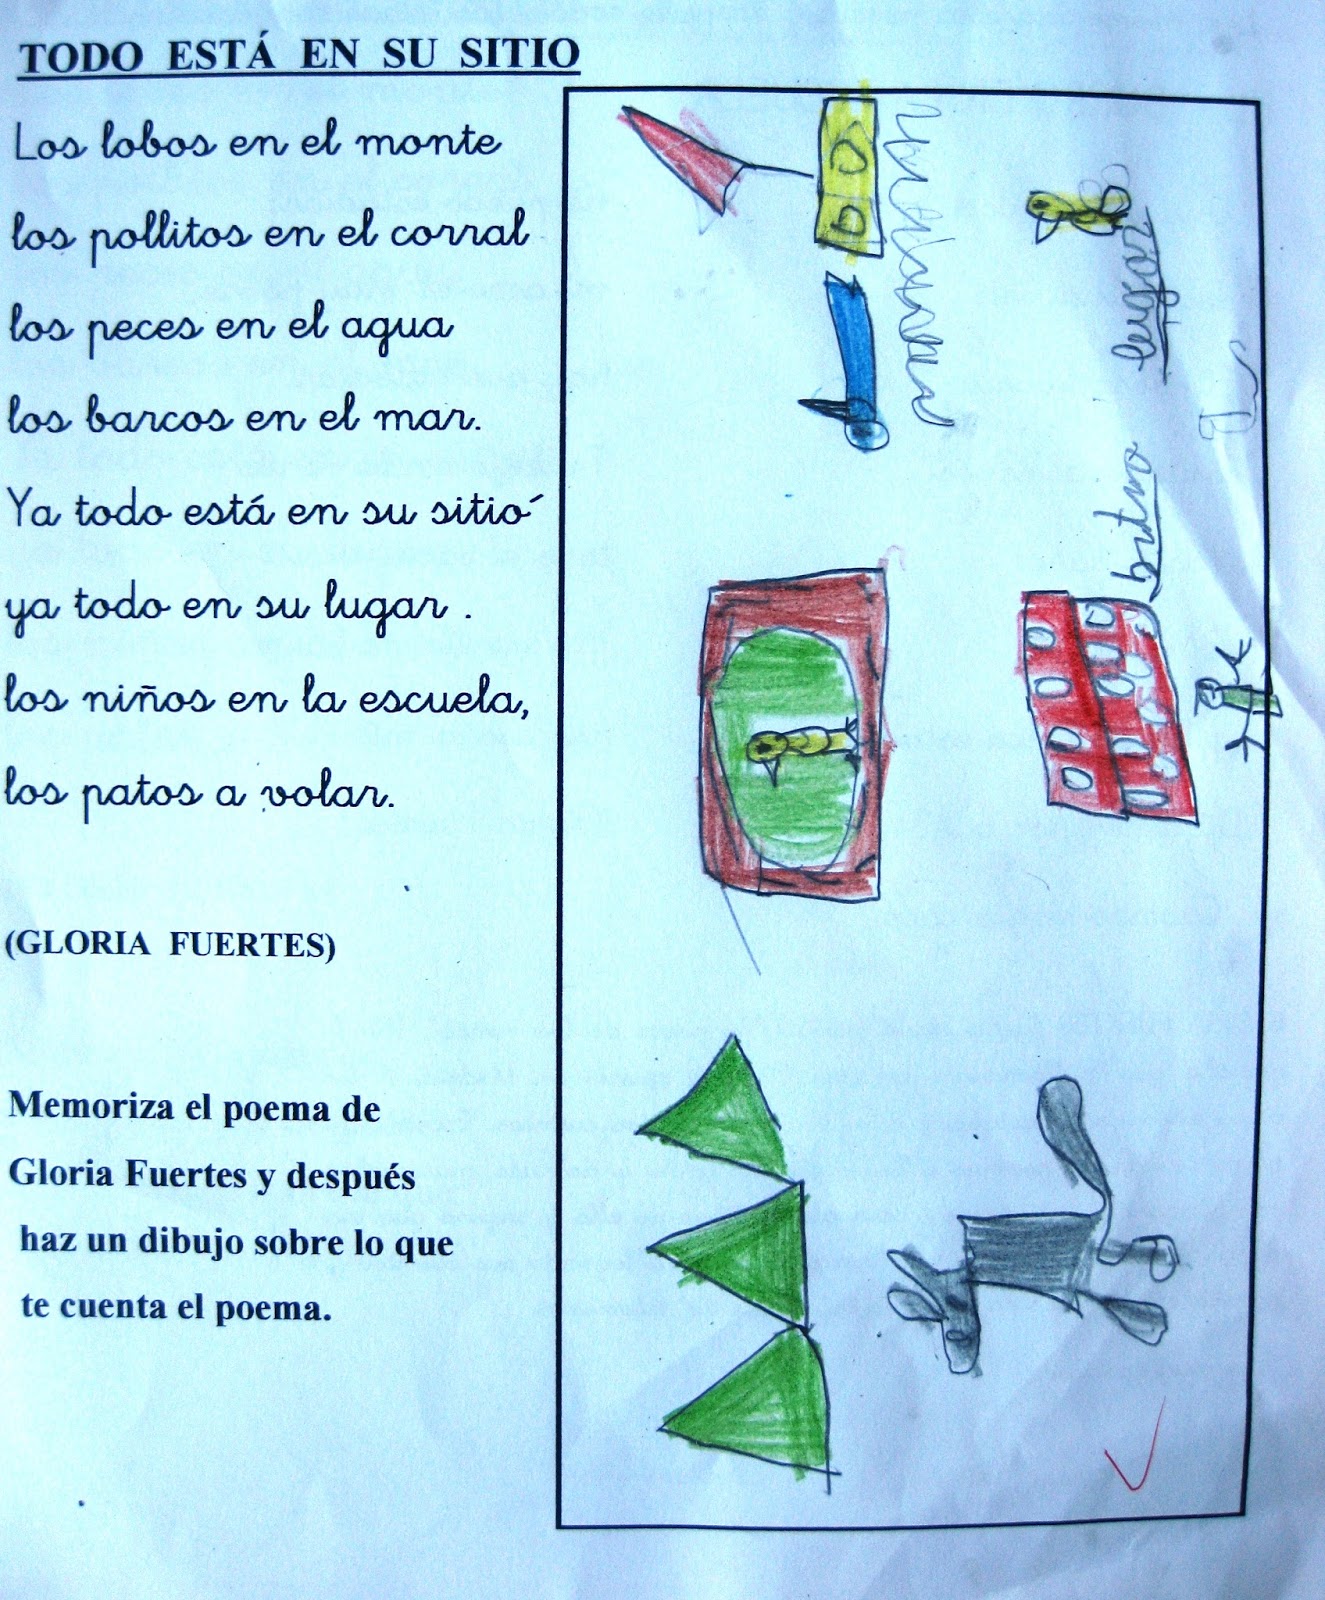 TODO ESTÁ EN SU SITIO
Los lobos en el monte
los pollitos en el corral
los peces en el agua
los barcos en el mar.
Ya todo está en su sitio´
ya todo en su lugar .
los niños en la escuela,
los patos a volar.
(GLORIA FUERTES)
Memoriza el poema de
Gloria Fuertes y después
haz un dibujo sobre lo que
te cuenta el poema.